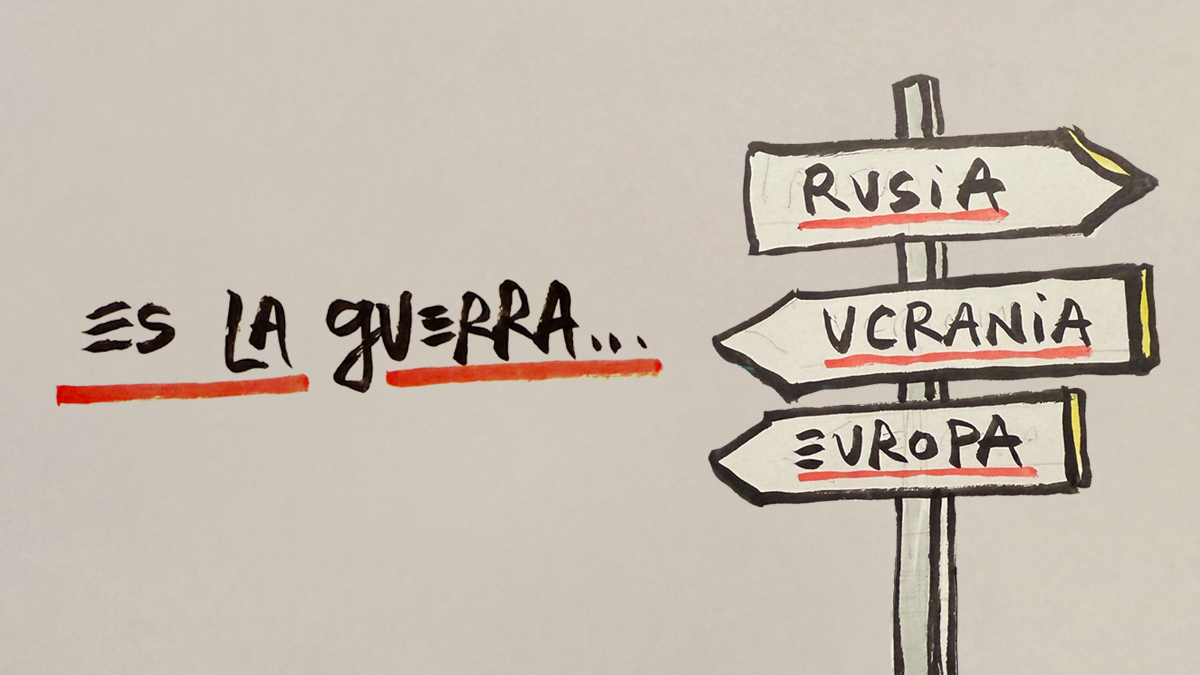 ES LA gUERRA...
RUSiA
UCRANiA
EUROPA